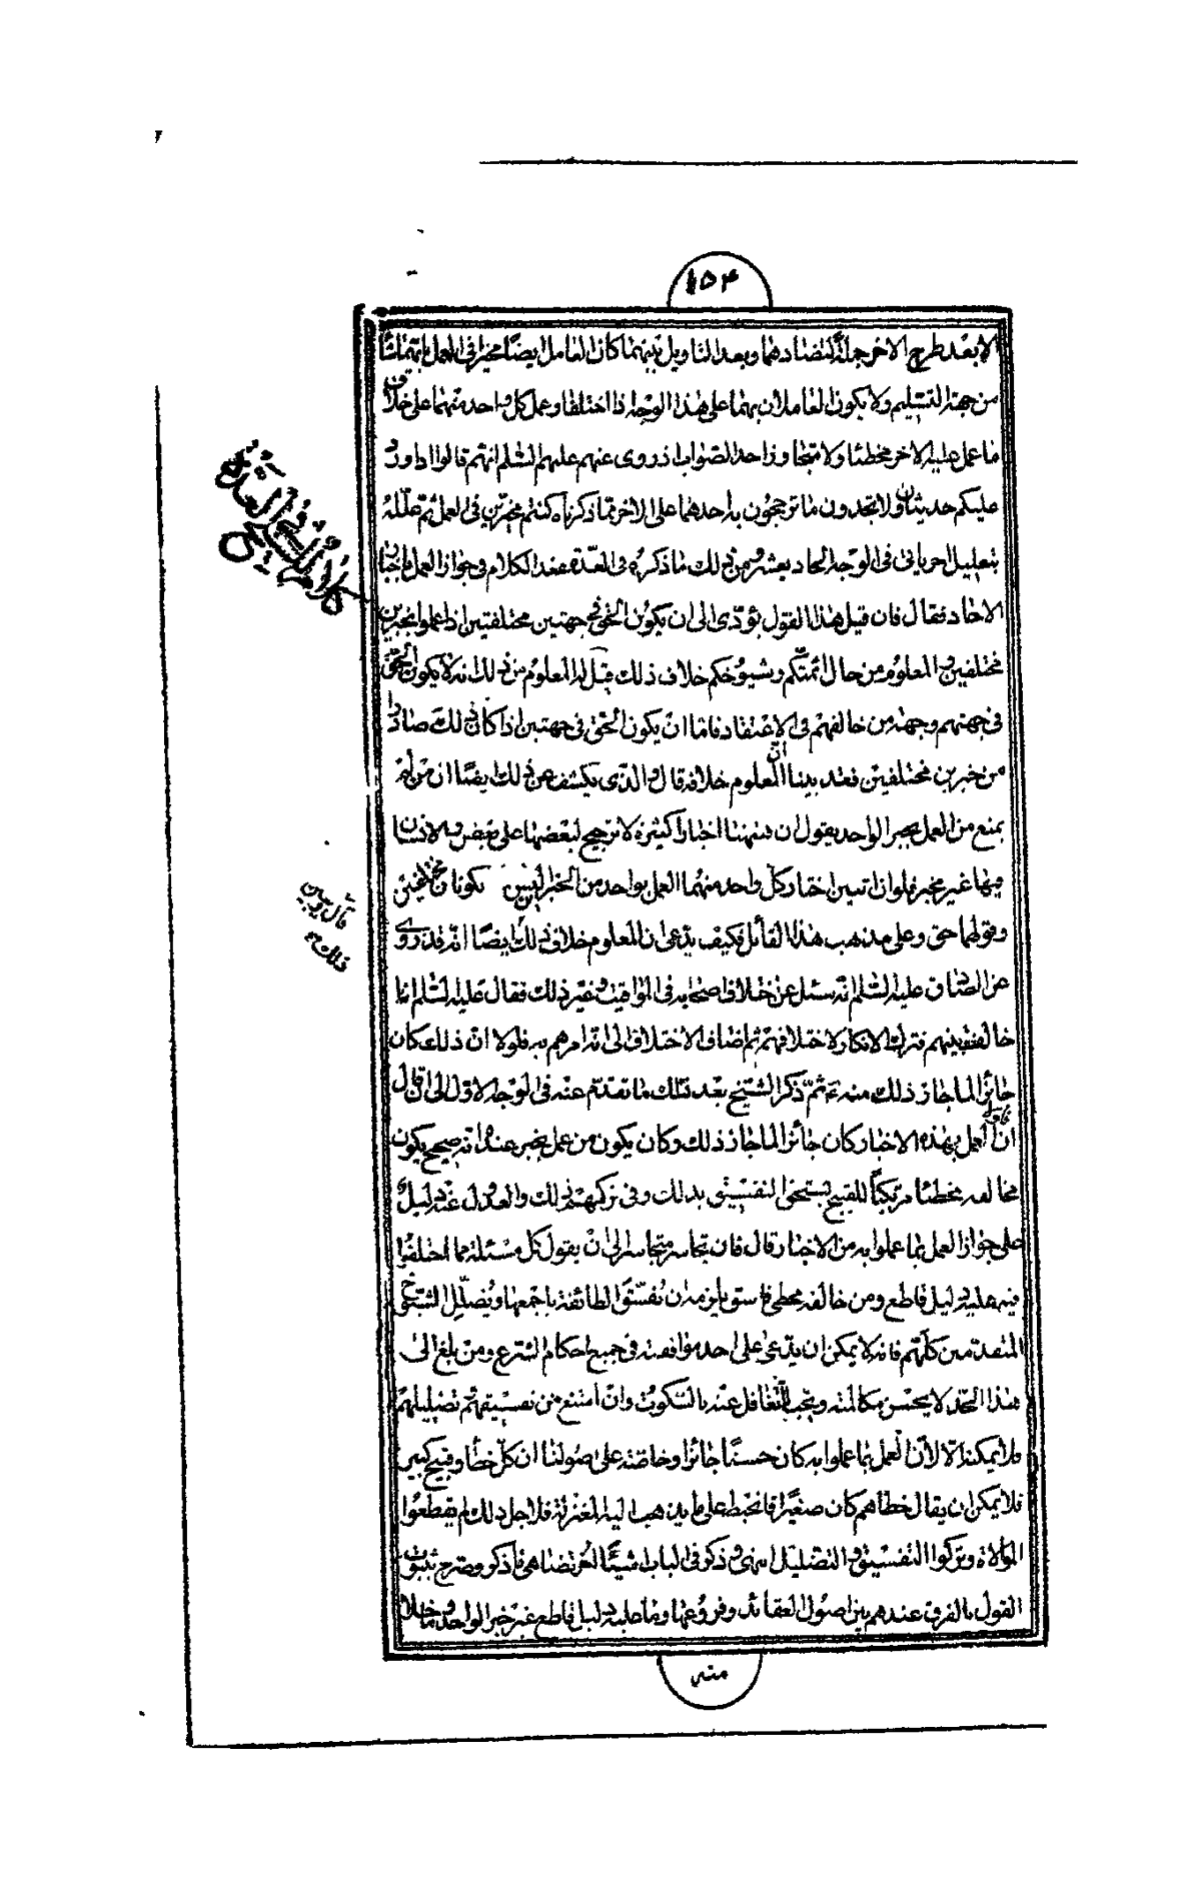 ١٥٤
الا بعد طرح الاخر جملة لتضادهما وبعد التاويل بينهما كان العامل ايضا مخيرا في العمل بايهما شاء
من جهة التسليم ولا يكون العاملان بهما على هذا الوجه اذا اختلفا وعمل كل واحد منهما على خلاف
ما عمل عليه الاخر مخطئا ولا متجاوزا حد الصواب اذ روى عنهم عليهم السلم انهم قالوا اذا ورد
عليكم حديثان ولا تجدون ما ترجحون به احدهما على الاخر مما ذكرناه كنتم مخيرين في العمل ثم علله
بتعليل اخر ياتي في الوجه الحاديعشر ومن ذلك ما ذكره في العدة عند الكلام في جواز العمل باخبار
الاحاد فقال فان قيل هذا القول يؤدى الى ان يكون الحق في جهتين مختلفتين اذا عملوا بخبرين
مختلفين والمعلوم من حال ائمتكم وشيوخكم خلاف ذلك قيل له المعلوم من ذلك انه لا يكون الحق
في جهتهم وجهة من خالفهم في الاعتقاد فاما ان يكون الحق في جهتين اذا كان ذلك صادرا
من خبرين مختلفين فقد بينا ان المعلوم خلافه قال والذى يكشف عن ذلك ايضا ان من لم
يمنع من العمل بخبر الواحد يقول ان هنهنا اخبارا كثيرة لا ترجيح لبعضها على بعض والانسان
فيها غير مخير فلو ان اثنين اختار كل واحد منهما العمل بواحد من الخبرين اليس يكونان مختلفين
وقولهما حق وعلى مذهب هذا القائل فكيف يدعى ان المعلوم خلاف ذلك ايضا انه قد روى
عن الصادق عليه السلم انه سئل عن خلاف اصحابه في المواقيت وغير ذلك فقال عليه السلم انا
خالفت بينهم فترك الانكار لاختلافهم ثم اضاف الاختلاف الى انه امرهم به فلولا ان ذلك كان
جائزا لما جاز ذلك منه ع ثم ذكر الشيخ بعد ذلك ما تقدم عنه في الوجه الاول الى ان قال
ان العمل بهذه الاخبار كان جائزا لما جاز ذلك وكان يكون من عمل بخبر عنده انه صحيح يكون
مخالفه مخطئا مرتكبا للقبيح يستحق التفسيق بذلك وفي تركهم ذلك والعدول عنه دليل
على جواز العمل بما عملوا به من الاخبار قال فان تجاسر متجاسر الى ان يقول كل مسئلة مما اختلفوا
فيه عليه دليل قاطع ومن خالفه مخطى فاسق يلزمه ان يفسق الطائفة باجمعها ويضلل الشيوخ
المتقدمين كلهم فانه لا يمكن ان يدعى على احد موافقته في جميع احكام الشرع ومن بلغ الى
هذا الحد لا يحسن مكالمته ويجب التغافل عنه بالسكوت وان امتنع من تفسيقهم تضليلهم
فلا يمكنه الا لان العمل بما عملوا به كان حسنا جائزا وخاصة على اصولنا ان كل خطأ وقبيح كبير
فلا يمكن ان يقال خطاهم كان صغيرا فانحبط على ما يذهب اليه المعتزلة فلاجل ذلك لم يقطعوا
الموالاة وتركوا التفسيق والتضليل انتهى وذكر في الباب اشياء اخر تضاهى ما ذكر وصرح بثبوت
القول بالفرق عندهم بين اصول العقائد وفروعها وما عليه دليل قاطع غير خبر الواحد وما خلا
منه
كلام الشيخ في العدة
قال يبين
ذلك